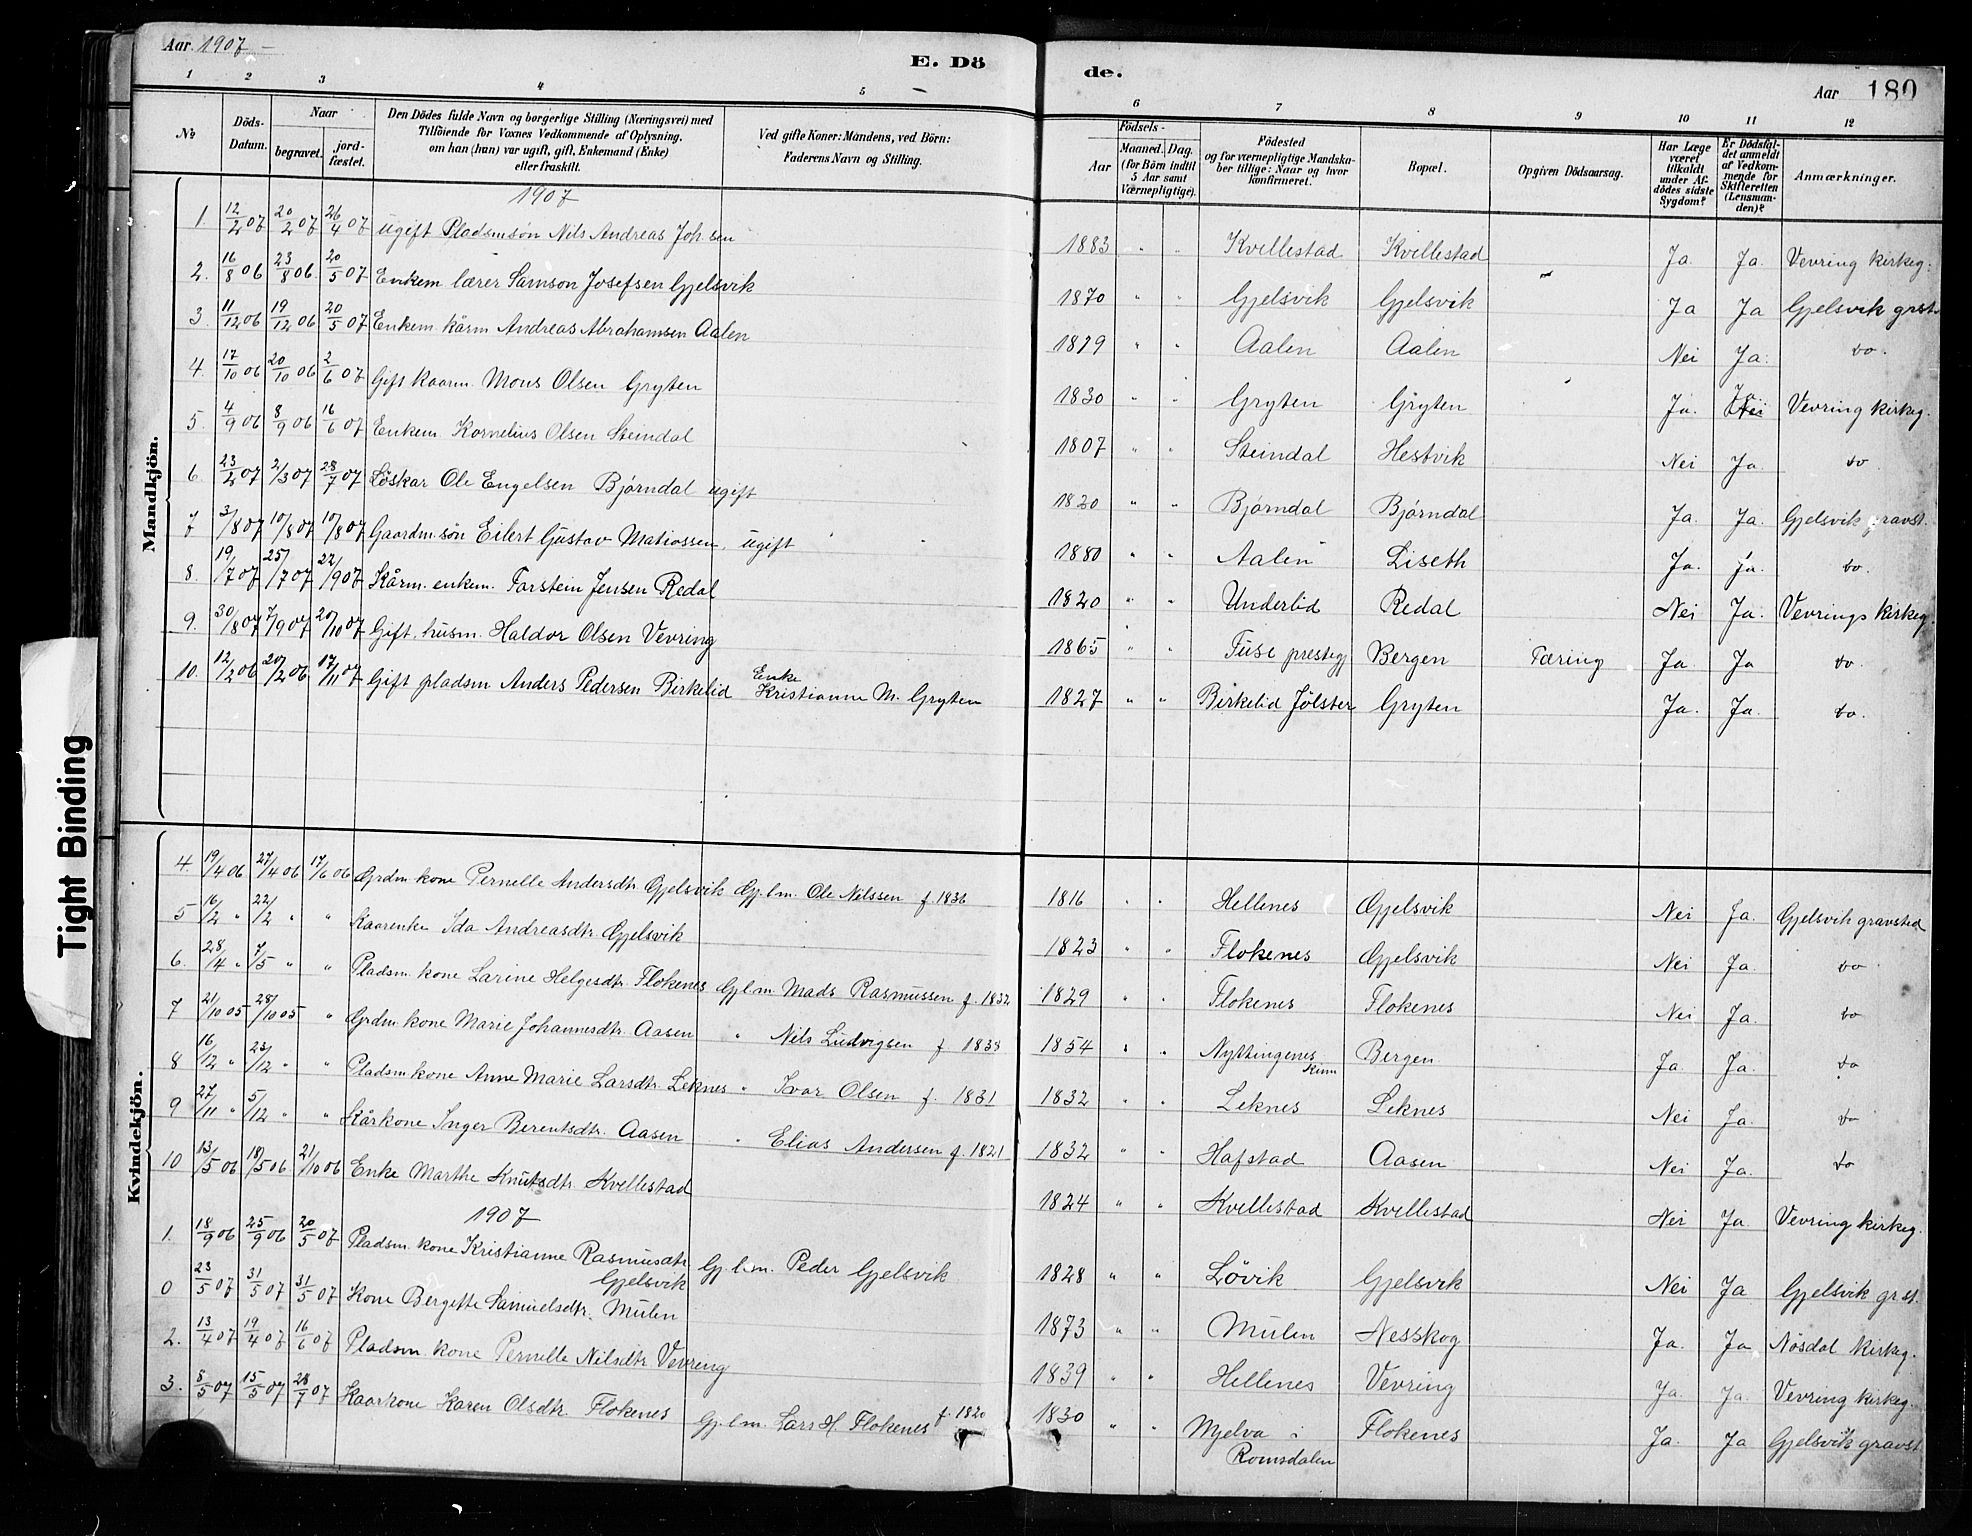 Aar 1907 –
E. Dö de.
Aar 180
1 2 3 4 5 6 7 8 9 10 11 12
No
Döds-Datum.
Naar
begravet.
jord-fæstet.
Den Dödes fulde Navn og borgerlige Stilling (Næringsvei) med
Tilföiende for Voxnes Vedkommende af Oplysning.
om han (hun) var ugift, gift, Enkemand (Enke)
eller fraskilt.
Ved gifte Koner: Mandens, ved Börn:
Faderens Navn og Stilling.
Födsels-
Aar
Maaned. Dag.
(for Börn indtil
5 Aar samt
Værnepligtige).
Födested
og for værnepligtige Mandska-
ber tillige: Naar og hvor
konfirmeret.
Bopæl.
Opgiven Dödsaarsag.
Har Læge
været
tilkaldt
under Af-
dödes sidste
Sygdom?
Er Dödsfal-
det anmeldt
af Vedkom-
mende for
Skifteretten
(Lensman-
den)?
Anmærkninger.
Mandkjön.
1907
1. 12/2 07 20/2 07 26/4 07 ugift Pladsmsøn Nils Andreas Joh.sen 1883 " " Kvellestad Kvellestad Ja Ja. Vevring kirkeg.
2. 16/8 06 23/8 06 20/5 07 Enkem lærer Samson Josefsen Gjelsvik 1870 " " Gjelsvik Gjelsvik Ja Ja Gjelsvik grst.
3. 11/12 06 19/12 06 20/5 07 Enkem kårm Andreas Abrahamsen Aalen 1819 " " Aalen Aalen Nei Ja. do.
4. 17/10 06 20/10 06 2/6 07 Gift kaarm. Mons Olsen Gryten 1830 " " Gryten Gryten Ja. Vevring kirkeg.
5. 4/9 06 8/9 06 16/6 07 Enkem Kornelius Olsen Steindal 1807 " " Steindal Hestvik Nei Ja. do
6 23/2 07 2/3 07 28/7 07 Löskar Ole Engelsen Bjørndal ugift 1820 " " Bjørndal Bjørndal Ja. Ja. Gjelsvik gravst.
7 3/8 07 10/8 07 10/8 07 Gaardm.søn Eilert Gustav Matiassen, ugift 1880 " " Aalen Liseth Ja. Ja. do.
8. 19/7 07 25/7 07 22/9 07 Kårm. enkem. Torstein Jensen Redal 1820 " " Underlid Redal Nei Ja. Vevrings kirkeg.
9. 30/8 07 7/9 07 20/10 07 Gift. husm. Haldor Olsen Vevring 1865 " " Fuse prestegj Bergen Tæring Ja. Ja do.
10. 12/2 06 20/2 06 17/11 07 Gift pladsm Anders Pedersen Birkelid Enke Kristianne M. Gryten 1827 " " Birkelid Jölster Gryten Ja. Ja. do.
Kvindekjön.
4. 19/4 06 27/4 06 17/6 06 Grdm kone Pernelle Andersdtr Gjelsvik Gj.l.m. Ole Nilssen f 1836 1816 " " Hellenes Gjelsvik Nei Ja. Gjelsvik gravsted
5 16/2 " 22/2 " " Kaarenke Ida Andreasdtr. Gjelsvik 1823 " " Flokenes Gjelsvik Nei Ja. do
6. 28/4 " 7/5 " " Pladsm. kone Larine Helgesdtr. Flokenes Gj.l.m. Mads Rasmussen f. 1832 1829 " " Flokenes Flokenes Nei Ja. do
7 21/10 05 28/10 05 " Grdm kone Marie Johannesdtr. Aasen " Nils Ludvigsen f 1838 1854 " " Nyttingenes Kinn Bergen Ja. Ja. do
8 16/12 " 23/12 " " Pladsm kone Anne Marie Larsdtr. Leknes " Ivar Olsen f. 1831 1832 " " Leknes Leknes Nei Ja. do
9 27/11 " 5/12 " " Kårkone Inger Berentsdtr. Aasen " Elias Andersen f. 1821 1832 " " Hafstad Aasen Nei Ja. do
10 13/5 06 18/5 06 21/10 06 Enke Marthe Knutsdtr Kvellestad 1824 " " Kvellestad Kvellestad Nei Ja. Vevring kirkeg.
1907
1. 18/9 06 25/9 06 20/5 07 Pladsm. kone Kristianne Rasmusdtr Gjelsvik Gj.l.m. Peder Gjelsvik 1828 " " Lövik Gjelsvik Nei Ja Gjelsvik gr.st.
0 23/5 07 31/5 07 31/5 07 Kone Bergitte Samuelsdtr. Mulen 1873 " " Mulen Nesskog Ja. Ja Nösdal kirkeg.
2. 13/4 07 19/4 07 16/6 07 Pladsm. kone Pernille Nilsdtr Vevring 1839 " " Hellenes Vevring Ja. Ja. Vevring kirkeg.
3. 8/5 07 15/5 07 28/7 07 Kaarkone Karen Olsdtr. Flokenes Gj.l.m. Lars H. Flokenes f. 1820 1830 " " Mjelva i Romsdalen Flokenes Ja. Ja Gjelsvik gravst.
Tight Binding